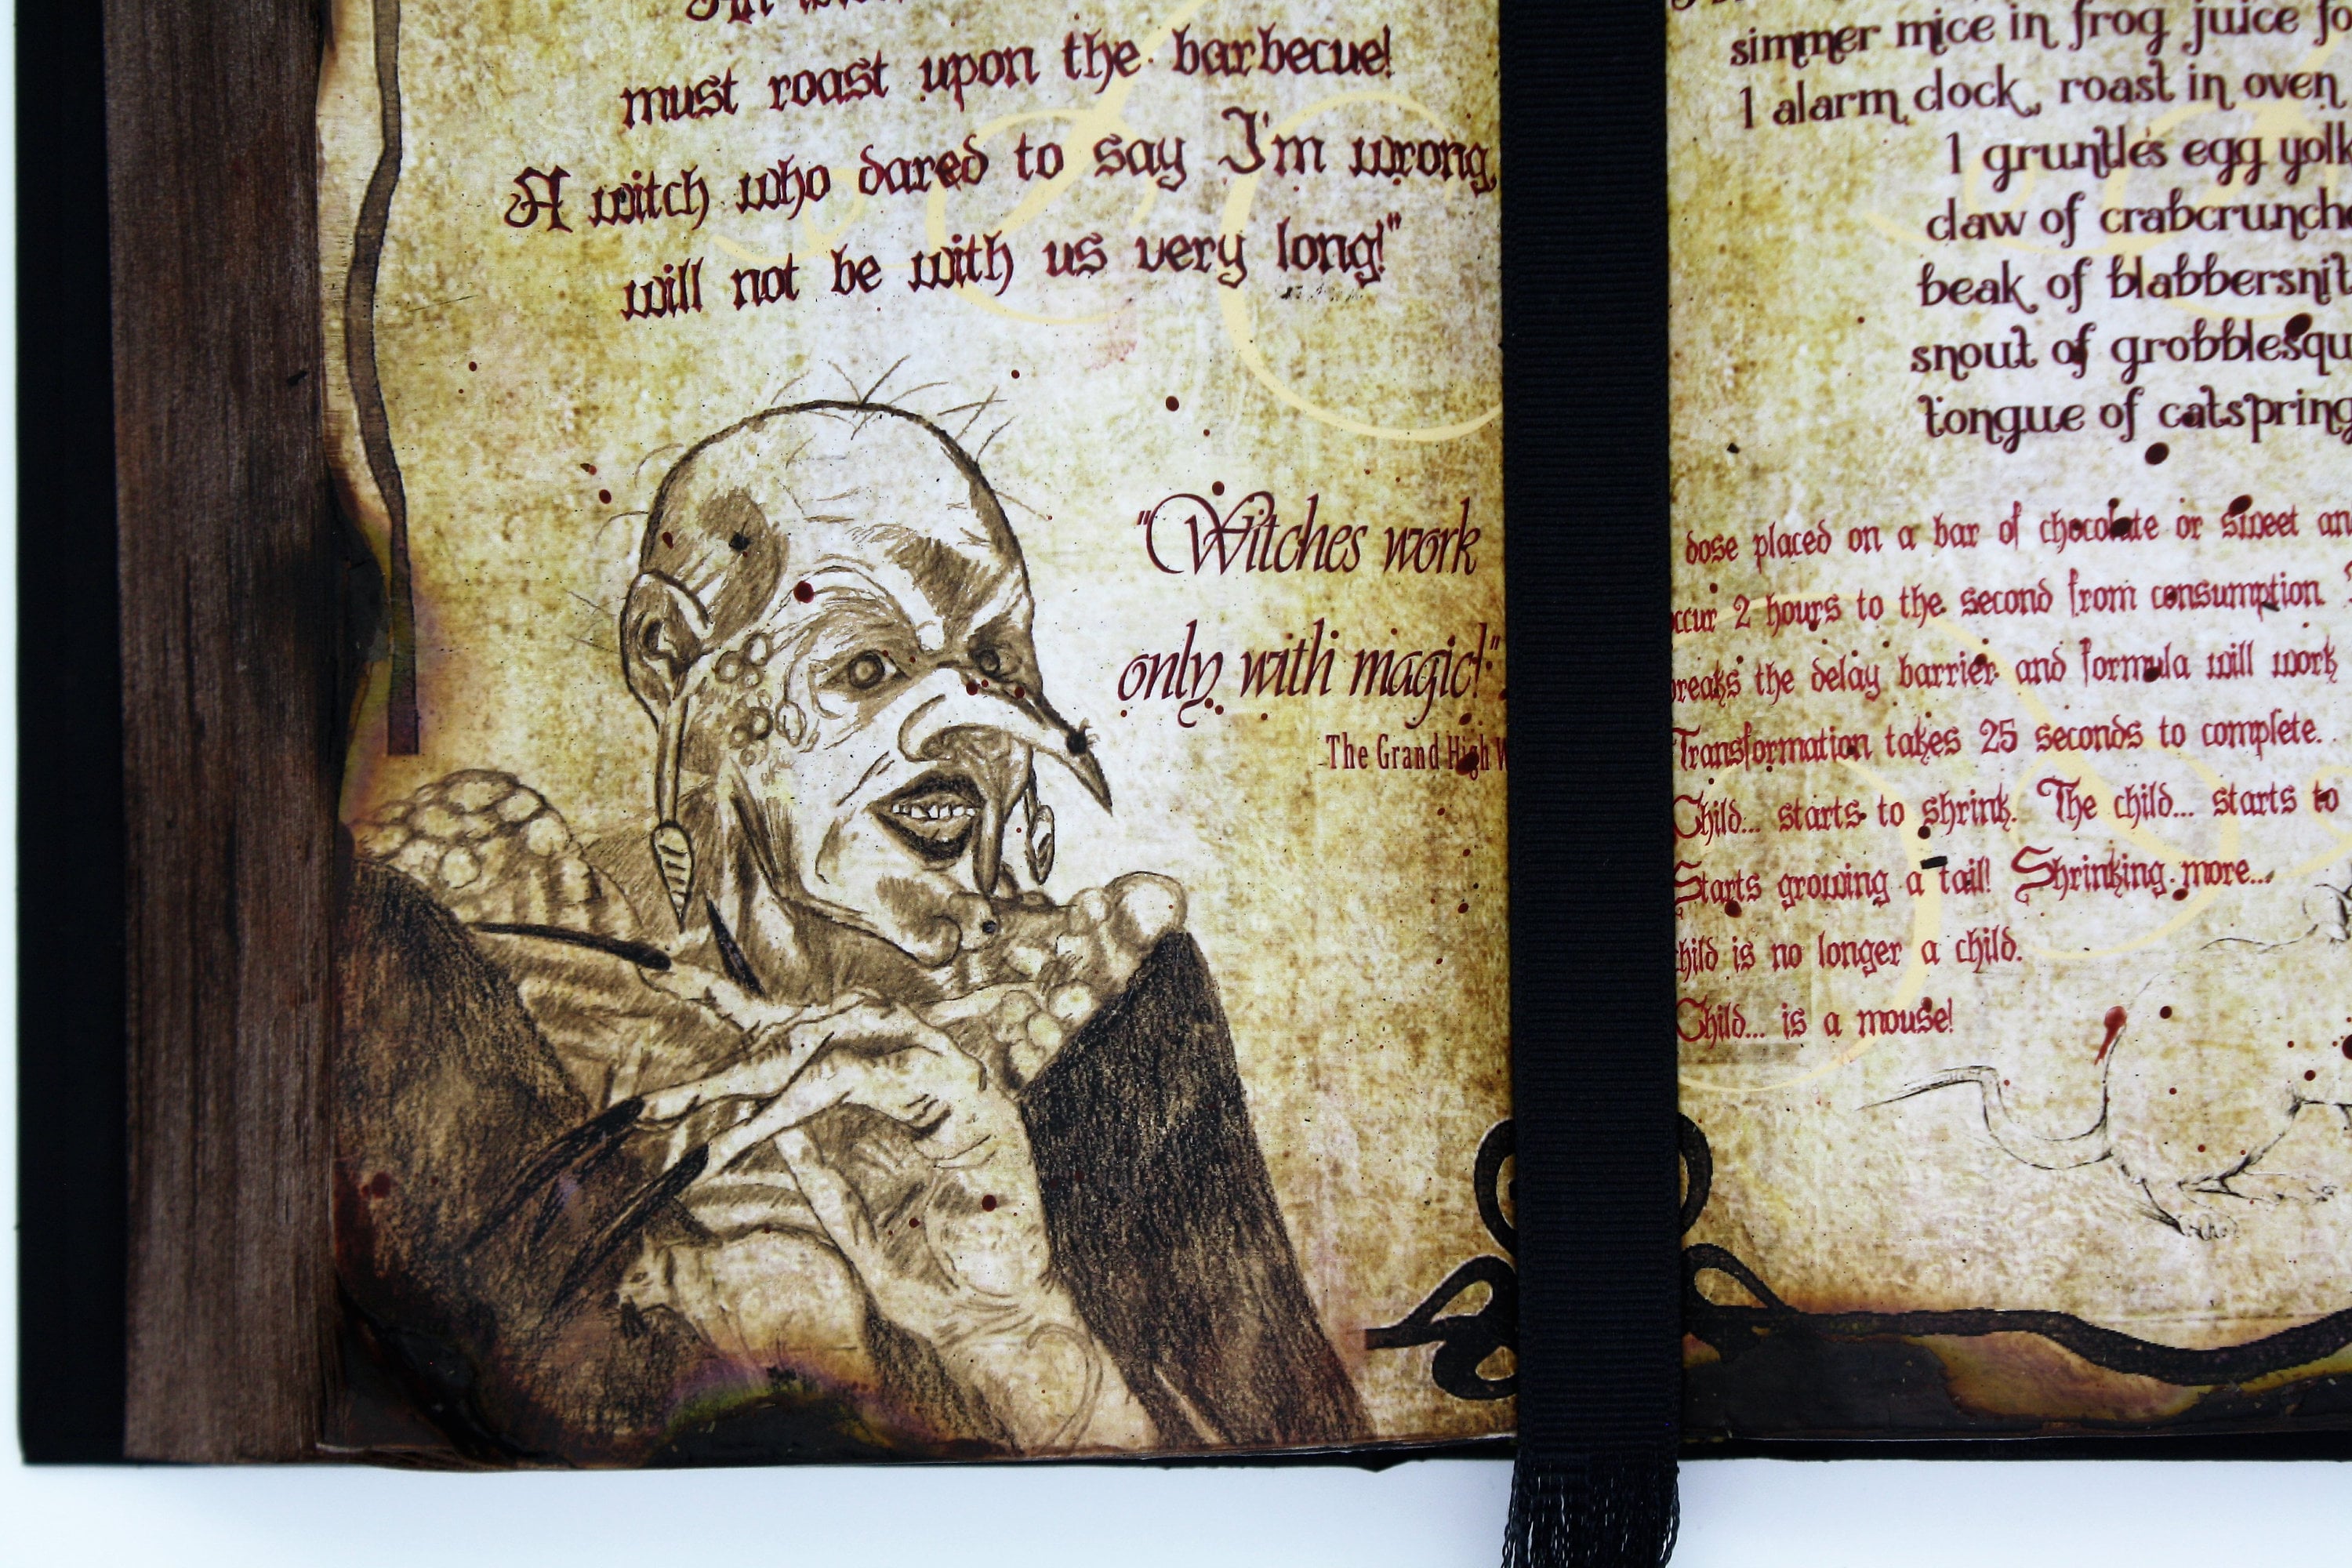 must roast upon the barbecue!
A witch who dared to say I'm wrong,
will not be with us very long!"
"Witches work
only with magic!"
The Grand High
simmer mice in frog juice
1 alarm clock, roast in oven
1 gruntle's egg yolk
claw of
beak of
snout of
tongue of
dose placed on a bar of chocolate or sweet
2 hours to the second from consumption.
the delay barrier and formula will work
Transformation takes 25 seconds to complete.
Child... starts to shrink. The child... starts to
Starts growing a tail! Shrinking more...
child is no longer a child.
Child... is a mouse!